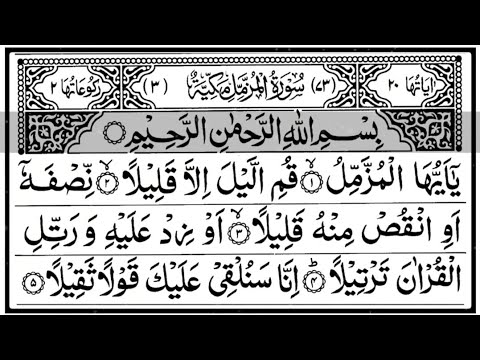 اٰیَاتُهَا ٢٠ (٧٣) سُوْرَةُ الْمُزَّمِّلِ مَكِّیَّةٌ (٣) رُكُوْعَاتُهَا ٢
بِسْمِ اللهِ الرَّحْمٰنِ الرَّحِیْمِ
یٰۤاَیُّهَا الْمُزَّمِّلُ ١ قُمِ الَّیْلَ اِلَّا قَلِیْلًا ٢ نِّصْفَهٗۤ
اَوِ انْقُصْ مِنْهُ قَلِیْلًا ٣ اَوْ زِدْ عَلَیْهِ وَ رَتِّلِ
الْقُرْاٰنَ تَرْتِیْلًا ٤ؕ اِنَّا سَنُلْقِیْ عَلَیْكَ قَوْلًا ثَقِیْلًا ٥